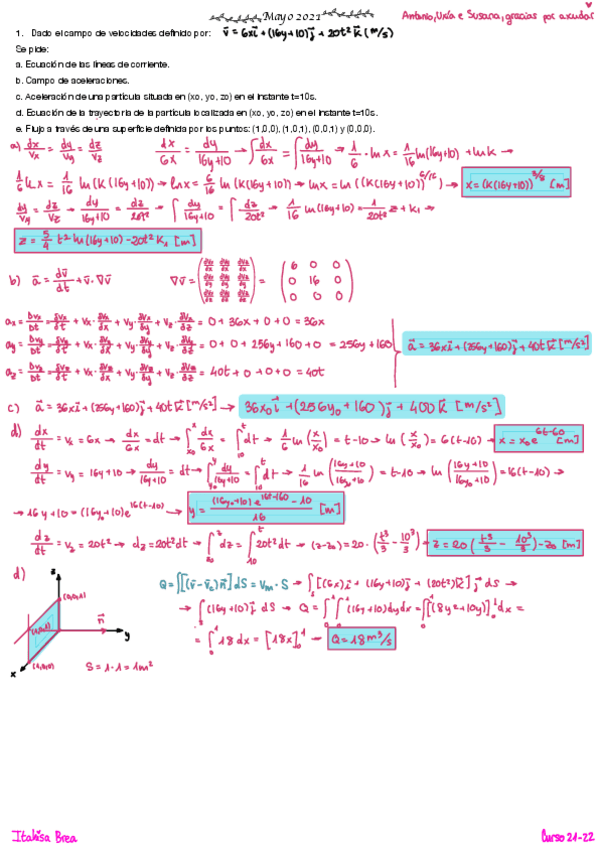 Mayo 2021
Antonio, Uxía e Susana, gracias por axudar
1. Dado el campo de velocidades definido por: v⃗ = 6xi⃗ + (16y+10)j⃗ + 20t²k⃗ (m/s)
Se pide:
a. Ecuación de las líneas de corriente.
b. Campo de aceleraciones.
c. Aceleración de una partícula situada en (xo, yo, zo) en el instante t=10s.
d. Ecuación de la trayectoria de la partícula localizada en (xo, yo, zo) en el instante t=10s.
e. Flujo a través de una superficie definida por los puntos: (1,0,0), (1,0,1), (0,0,1) y (0,0,0).
a) dx/Vx = dy/Vy = dz/Vz dx/6x = dy/(16y+10) → ∫dx/6x = ∫dy/(16y+10) → 1/6 · ln x = 1/16 ln(16y+10) + ln K →
1/6 ln x = 1/16 ln(K(16y+10)) → ln x = 6/16 ln(K(16y+10)) → ln x = ln((K(16y+10))^6/16) → x = (K(16y+10))^3/8 [m]
dy/Vy = dz/Vz → dy/(16y+10) = dz/20t² → ∫dy/(16y+10) = ∫dz/20t² → 1/16 ln(16y+10) = 1/20t² z + K₁ →
z = 5/4 t² ln(16y+10) - 20t² K₁ [m]
b) a⃗ = dv⃗/dt + v⃗ · ∇v⃗ ∇v⃗ = (∂Vx/∂x ∂Vx/∂y ∂Vx/∂z ∂Vy/∂x ∂Vy/∂y ∂Vy/∂z ∂Vz/∂x ∂Vz/∂y ∂Vz/∂z) = (6 0 0 0 16 0 0 0 0)
ax = DVx/Dt = ∂Vx/∂t + Vx · ∂Vx/∂x + Vy · ∂Vx/∂y + Vz · ∂Vx/∂z = 0 + 36x + 0 + 0 = 36x
ay = DVy/Dt = ∂Vy/∂t + Vx · ∂Vy/∂x + Vy · ∂Vy/∂y + Vz · ∂Vy/∂z = 0 + 0 + 256y + 160 + 0 = 256y + 160
a⃗ = 36xi⃗ + (256y+160)j⃗ + 40tk⃗ [m/s²]
az = DVz/Dt = ∂Vz/∂t + Vx · ∂Vz/∂x + Vy · ∂Vz/∂y + Vz · ∂Vz/∂z = 40t + 0 + 0 + 0 = 40t
c) a⃗ = 36xi⃗ + (256y+160)j⃗ + 40tk⃗ [m/s²] → 36x₀i⃗ + (256y₀+160)j⃗ + 400k⃗ [m/s²]
d) dx/dt = Vx = 6x → dx/6x = dt → ∫dx/6x = ∫dt → 1/6 ln(x/x₀) = t-10 → ln(x/x₀) = 6(t-10) → x = x₀e^6t-60 [m]
dy/dt = Vy = 16y+10 → dy/(16y+10) = dt → ∫dy/(16y+10) = ∫dt → 1/16 ln((16y+10)/(16y₀+10)) = t-10 → ln((16y+10)/(16y₀+10)) = 16(t-10) →
→ 16y+10 = (16y₀+10)e^16(t-10) → y = ((16y₀+10)e^16t-160 - 10)/16 [m]
dz/dt = Vz = 20t² → dz = 20t²dt → ∫dz = ∫20t²dt → (z-z₀) = 20 · (t³/3 - 10³/3) → z = 20(t³/3 - 10³/3) - z₀ [m]
d)
z
(0,0,1)
(1,0,1)
n⃗
y
x
(1,0,0)
S = 1·1 = 1m²
Q = ∫[(v⃗-v⃗c)n⃗]dS = Vm · S → ∫[(6x)i⃗ + (16y+10)j⃗ + (20t²)k⃗]j⃗ dS →
→ ∫(16y+10)j⃗ dS → Q = ∫∫(16y+10)dydx = ∫[(8y²+10y)]dx =
= ∫18dx = [18x] → Q = 18 m³/s
Itahisa Brea
Curso 21-22